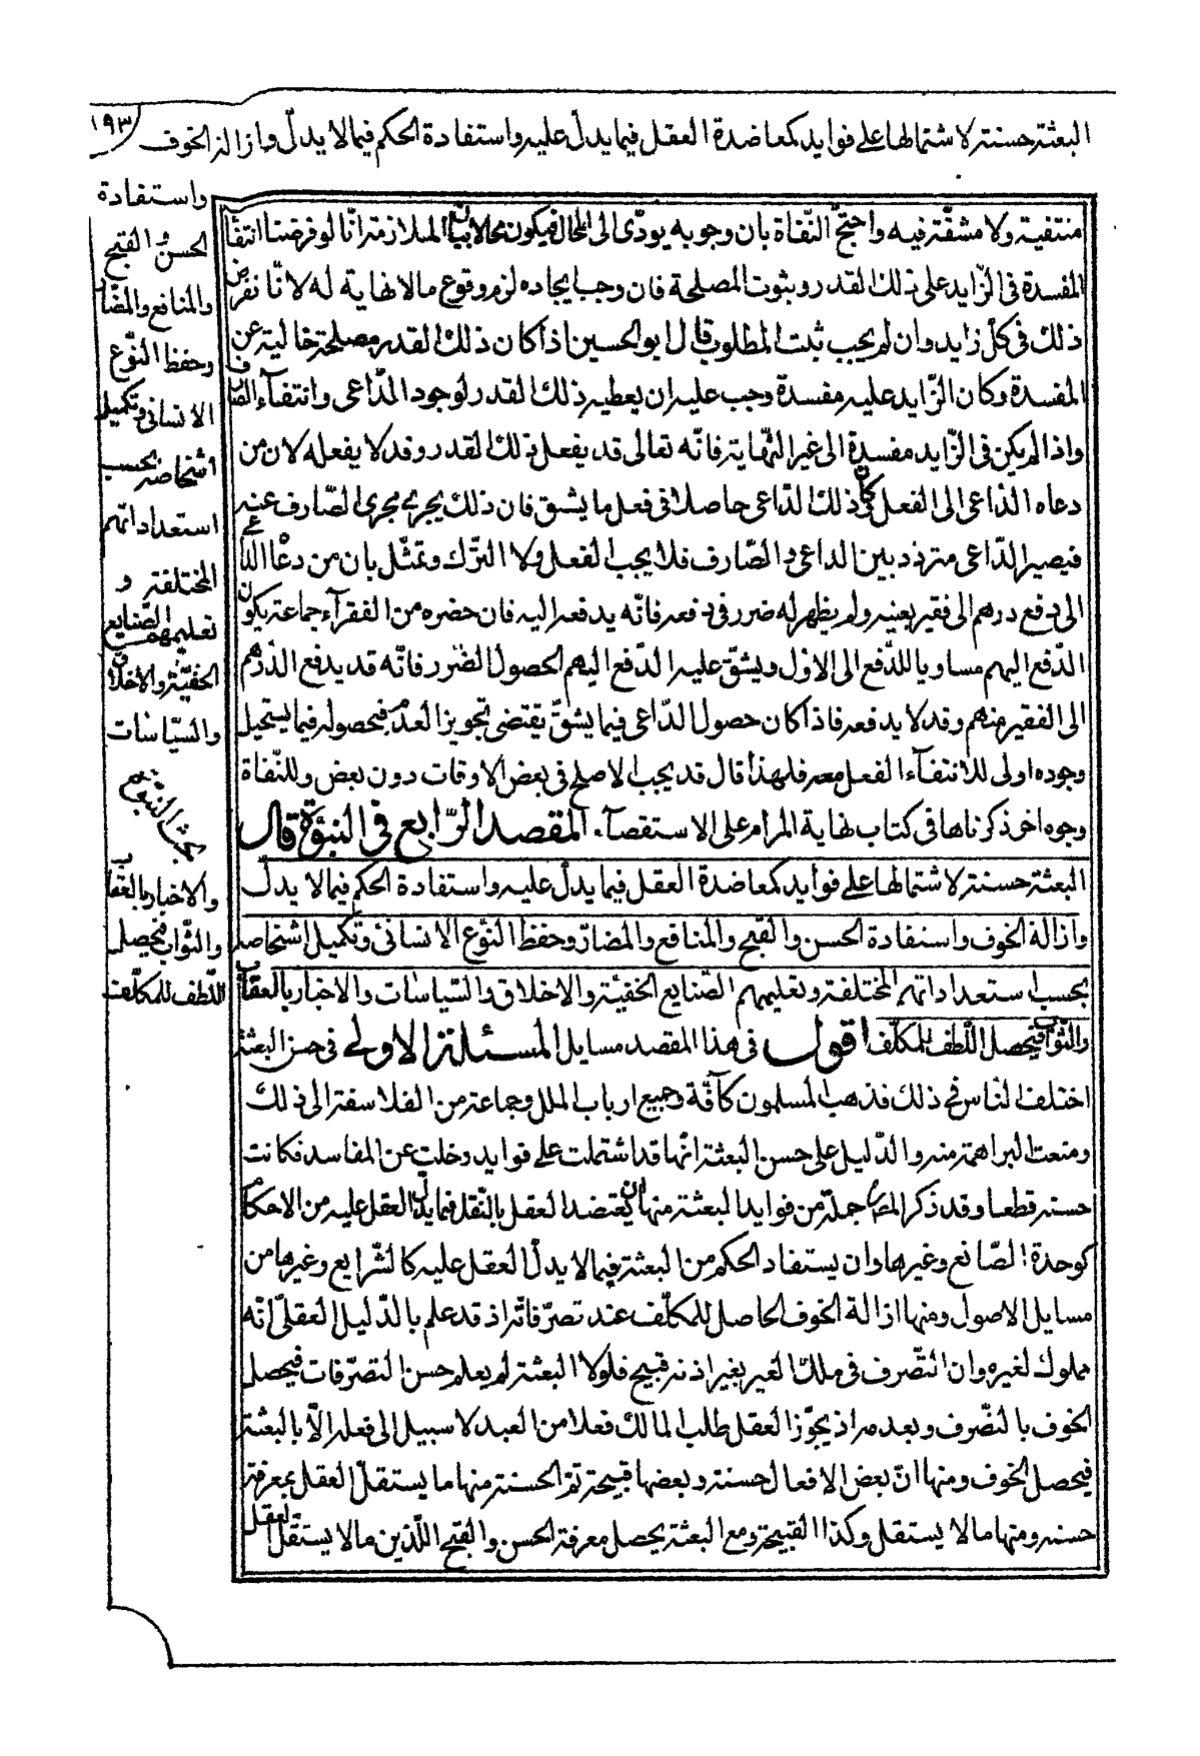 ١٩٣
البعثة حسنة لاشتمالها على فوايد كمعاضدة العقل فيما يدلّ عليه واستفادة الحكم فيما لا يدلّ وازالة الخوف
واستفادة
الحسن والقبح
والمنافع والمضار
وحفظ النّوع
الانسانى وتكميل
اشخاصه بحسب
استعداداتهم
المختلفة و
تعليمهم الصّنايع
الخفيّة والاخلاق
والسّياسات
بحث النبوّة
والاخبار بالعقاب
والثواب فيحصل
اللّطف للمكلّف
منتفية ولا مشقّة فيه واحتجّ النّفاة بان وجوبه يودّى الى المحال فيكون محالا بيان الملازمة انّا لو فرضنا انتفاء
المفسدة فى الزّايد على ذلك القدر وثبوت المصلحة فان وجب ايجاده لزم وقوع مالا نهاية له لانّا نفرض
ذلك فى كلّ زايد وان لم يجب ثبت المطلوب قال ابو الحسين اذا كان ذلك القدر مصلحة خالية عن
المفسدة وكان الزّايد عليه مفسدة وجب عليه ان يعطيه ذلك القدر لوجود الدّاعى وانتفآء الصارف
واذا لم يكن فى الزّايد مفسدة الى غير النّهاية فانّه تعالى قد يفعل ذلك القدر وقد لا يفعله لان من
دعاه الدّاعى الى الفعل وكان ذلك الدّاعى حاصلا فى فعل ما يشق فان ذلك يجرى مجرى الصّارف عنه
فيصير الدّاعى متردد بين الداعى والصّارف فلا يجب الفعل ولا الترك وتمثّل بان من دعاه الدّاعى
الى دفع درهم الى فقير بعينه ولم يظهر له ضرر فى دفعه فانّه يدفعه اليه فان حضره من الفقرآء جماعة يكون
الدّفع اليهم مساويا للدّفع الى الاوّل ويشقّ عليه الدّفع اليهم لحصول الضّرر فانّه قد يدفع الدّرهم
الى الفقير منهم وقد لا يدفعه فاذا كان حصول الدّاعى فيما يشقّ يقتضى تجويز العدم فحصوله فيما يستحيل
وجوده اولى للانتفآء الفعل معه فلهذا قال قد يجب الاصلح فى بعض الاوقات دون بعض وللنّفاة
وجوه اخر ذكرناها فى كتاب نهاية المرام على الاستقصآء. المقصد الرّابع فى النبوّة قال
البعثة حسنة لاشتمالها على فوايد كمعاضدة العقل فيما يدلّ عليه واستفادة الحكم فيما لا يدلّ
وازالة الخوف واستفادة الحسن والقبح والمنافع والمضارّ وحفظ النّوع الانسانى وتكميل اشخاصه
بحسب استعداداتهم المختلفة وتعليمهم الصّنايع الخفيّة والاخلاق والسّياسات والاخبار بالعقاب
والثّواب فيحصل اللّطف للمكلّف اقول فى هذا المقصد مسايل المسئلة الاولى فى حسن البعثة
اختلف النّاس فى ذلك فذهب المسلمون كآفّة وجميع ارباب الملل وجماعة من الفلاسفة الى ذلك
ومنعت البراهمة منه والدّليل على حسن البعثة انّها قد اشتملت على فوايد وخلت عن المفاسد فكانت
حسنة قطعا وقد ذكر المص جملة من فوايد البعثة منها ان يعتضد العقل بالنّقل فيما يدلّ العقل عليه من الاحكام
كوحدة الصّانع وغيرها وان يستفاد الحكم من البعثة فيما لا يدلّ العقل عليه كالشّرايع وغيرها من
مسايل الاصول ومنها ازالة الخوف الحاصل للمكلّف عند تصرّفاته اذ قد علم بالدّليل العقلىّ انّه
مملوك لغيره وان التّصرف فى ملك الغير بغير اذنه قبيح فلولا البعثة لم يعلم حسن التصرّفات فيحصل
الخوف بالتصّرف وبعدمه اذ يجوّز العقل طلب المالك فعلا من العبد لا سبيل الى فعله الاّ بالبعثة
فيحصل الخوف ومنها انّ بعض الافعال حسنة وبعضها قبيحة ثمّ الحسنة منها ما يستقلّ العقل بمعرفة
حسنه ومنها مالا يستقل وكذا القبيحة ومع البعثة يحصل معرفة الحسن والقبح اللّذين مالا يستقلّ العقل